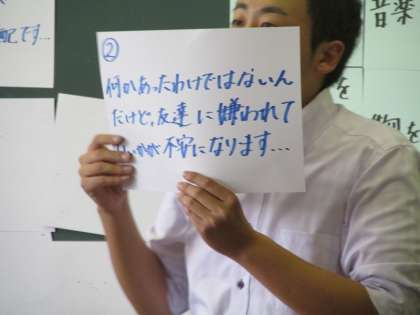 配です…
②
何かあったわけではないん
だけど、友達に嫌われて
いないか不安になります…
音楽
を
何を